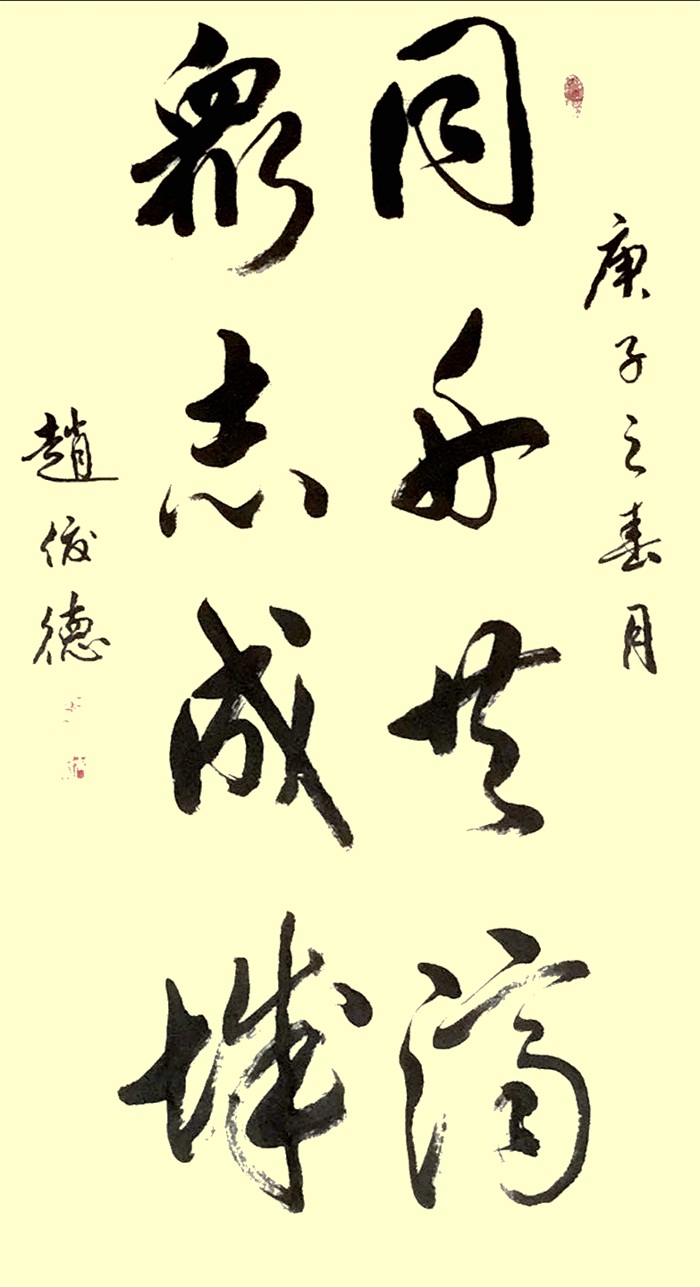 庚子之春月
同舟共濟
眾志成城
趙俊德